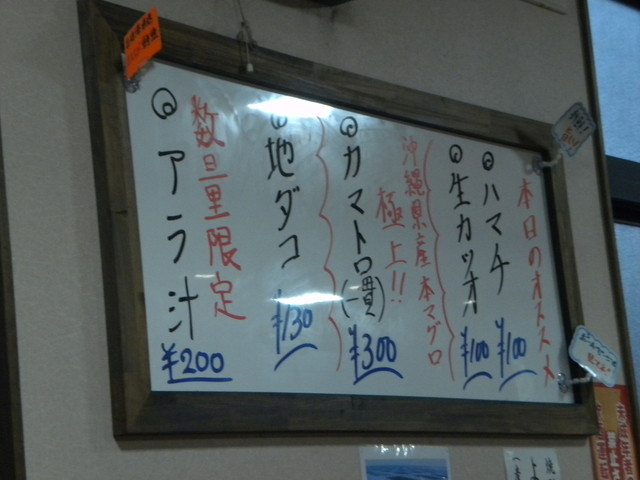 本日のオススメ
◎ハマチ ¥100
◎生カツオ ¥100
沖縄県産本マグロ
極上!!
◎カマトロ(一貫) ¥300
◎地ダコ ¥130
数量限定
◎アラ汁 ¥200